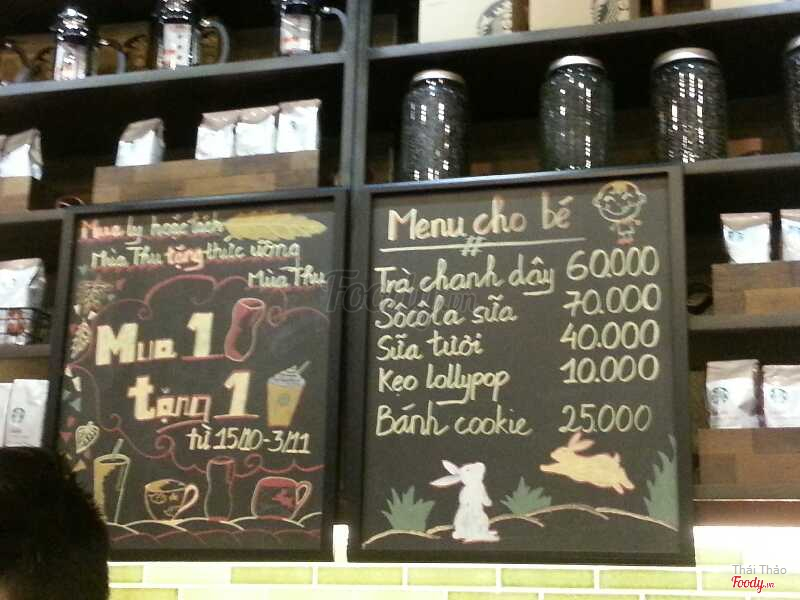 Mua ly hoặc tách
Mùa Thu tặng thức uống
Mùa Thu
Mua 1
tặng 1
từ 15/10-3/11
Menu cho bé
#
Trà chanh dây 60.000
Sôcôla sữa 70.000
Sữa tươi 40.000
Kẹo lollypop 10.000
Bánh cookie 25.000
Foody.vn
Thái Thảo
Foody.vn